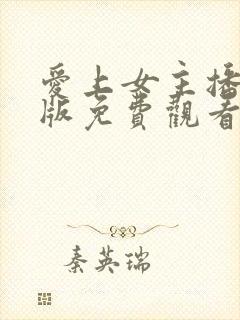 愛上女主播
版免費觀看
秦英瑞